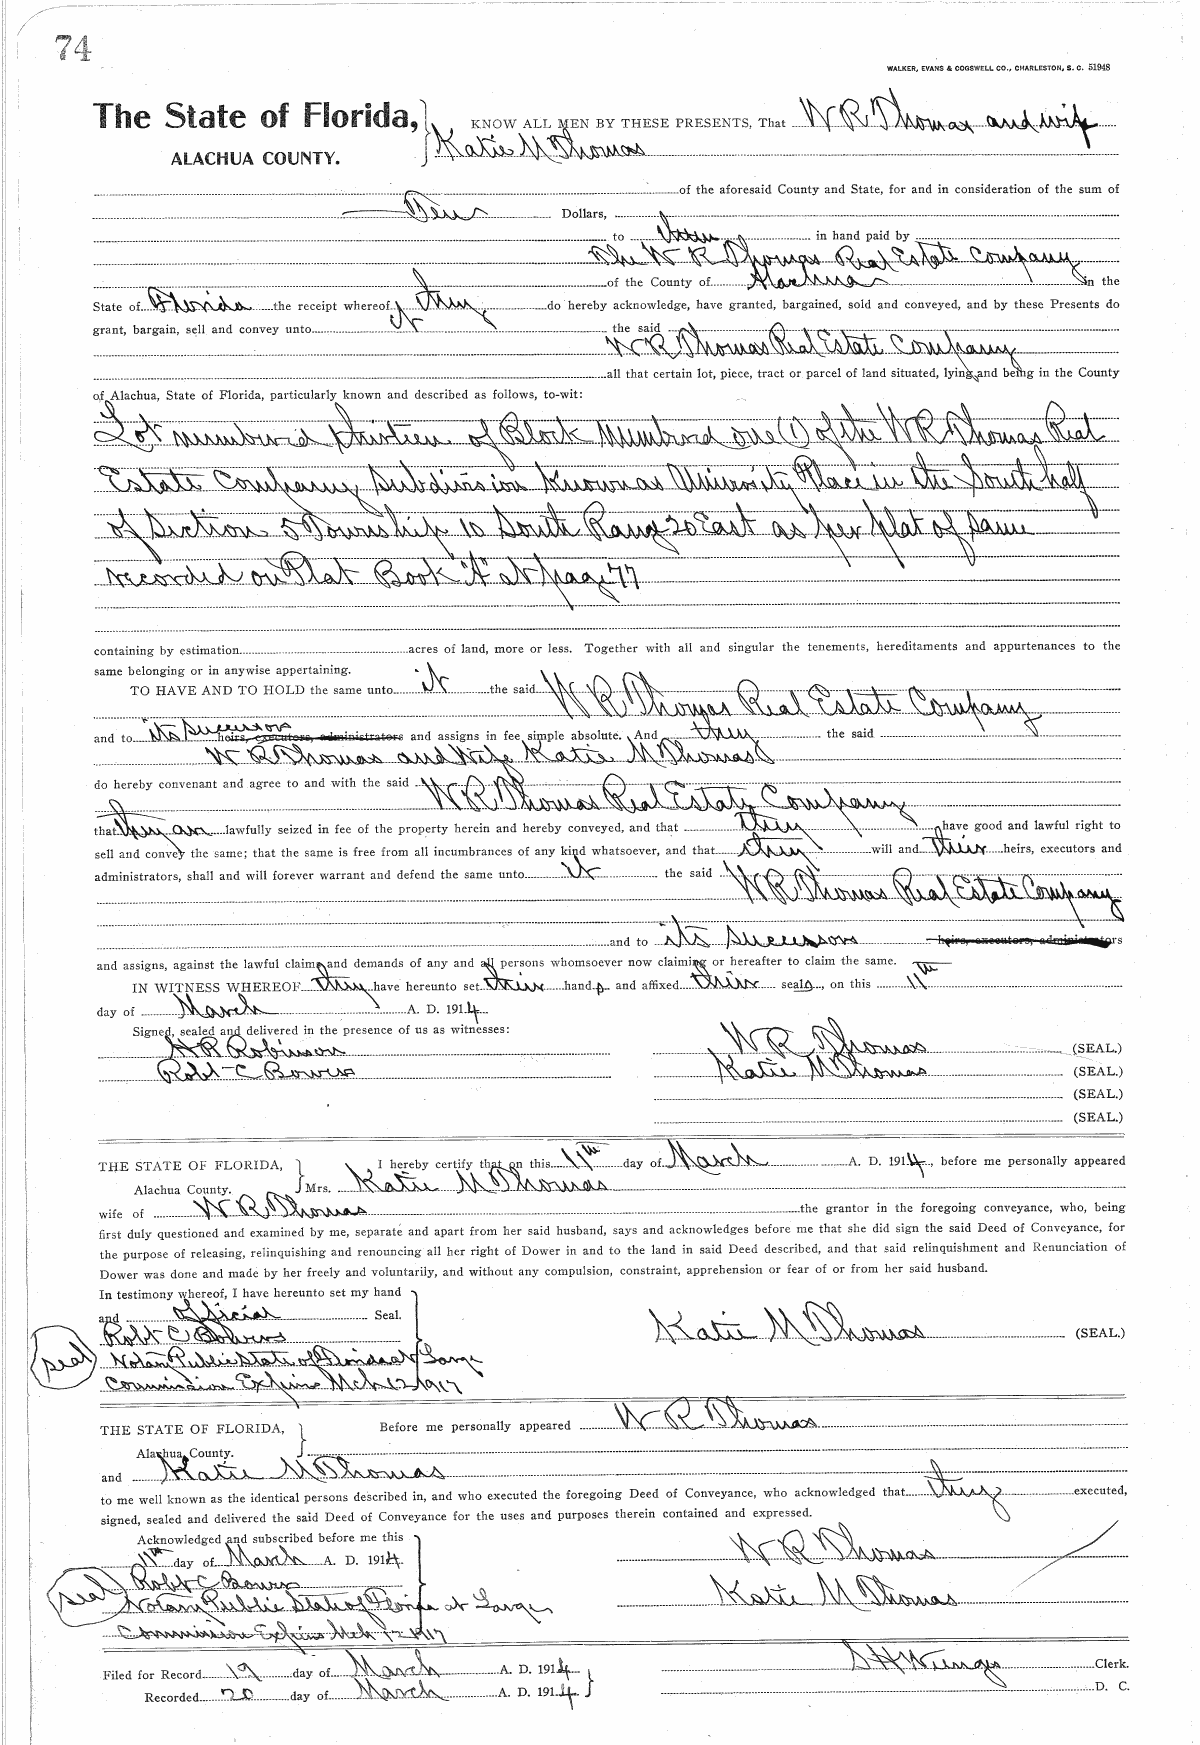 74
WALKER, EVANS & COGSWELL CO., CHARLESTON, S. C. 51948
The State of Florida, KNOW ALL MEN BY THESE PRESENTS, That W R Thomas and wife
ALACHUA COUNTY. Katie M Thomas
of the aforesaid County and State, for and in consideration of the sum of
Ten Dollars,
to them in hand paid by
The W R Thomas Real Estate Company
of the County of Alachua in the
State of Florida the receipt whereof they do hereby acknowledge, have granted, bargained, sold and conveyed, and by these Presents do
grant, bargain, sell and convey unto it the said
W R Thomas Real Estate Company
all that certain lot, piece, tract or parcel of land situated, lying and being in the County
of Alachua, State of Florida, particularly known and described as follows, to-wit:
Lot numbered thirteen of Block Numbered one (1) of the W R Thomas Real
Estate Company subdivision known as University Place in the South half
of Section 5 Township 10 South Range 20 East as per plat of same
recorded on Plat Book "A" at page 77
containing by estimation acres of land, more or less. Together with all and singular the tenements, hereditaments and appurtenances to the
same belonging or in anywise appertaining.
TO HAVE AND TO HOLD the same unto it the said W R Thomas Real Estate Company
and to its successors heirs, executors, administrators and assigns in fee simple absolute. And they the said
W R Thomas and Wife Katie M Thomas
do hereby convenant and agree to and with the said W R Thomas Real Estate Company
that they are lawfully seized in fee of the property herein and hereby conveyed, and that they have good and lawful right to
sell and convey the same; that the same is free from all incumbrances of any kind whatsoever, and that they will and their heirs, executors and
administrators, shall and will forever warrant and defend the same unto it the said W R Thomas Real Estate Company
and to its successors heirs, executors, administrators
and assigns, against the lawful claims and demands of any and all persons whomsoever now claiming or hereafter to claim the same.
IN WITNESS WHEREOF they have hereunto set their hands and affixed their seals, on this 11th
day of March A. D. 1914
Signed, sealed and delivered in the presence of us as witnesses:
H R Robinson W R Thomas (SEAL.)
Robt C Bowers Katie M Thomas (SEAL.)
(SEAL.)
(SEAL.)
THE STATE OF FLORIDA, I hereby certify that on this 11th day of March A. D. 1914, before me personally appeared
Alachua County. Mrs. Katie M Thomas
wife of W R Thomas the grantor in the foregoing conveyance, who, being
first duly questioned and examined by me, separate and apart from her said husband, says and acknowledges before me that she did sign the said Deed of Conveyance, for
the purpose of releasing, relinquishing and renouncing all her right of Dower in and to the land in said Deed described, and that said relinquishment and Renunciation of
Dower was done and made by her freely and voluntarily, and without any compulsion, constraint, apprehension or fear of or from her said husband.
In testimony whereof, I have hereunto set my hand
and official Seal.
Robt C Bowers Katie M Thomas (SEAL.)
seal Notary Public State of Florida at Large
Commission Expires Mch 12 1917
THE STATE OF FLORIDA, Before me personally appeared W R Thomas
Alachua County.
and Katie M Thomas
to me well known as the identical persons described in, and who executed the foregoing Deed of Conveyance, who acknowledged that they executed,
signed, sealed and delivered the said Deed of Conveyance for the uses and purposes therein contained and expressed.
Acknowledged and subscribed before me this
11th day of March A. D. 1914. W R Thomas
Robt C Bowers
seal Notary Public State of Florida at Large Katie M Thomas
Commission Expires Mch 12 1917
Filed for Record 19 day of March A. D. 1914 S H Wienges Clerk.
Recorded 20 day of March A. D. 1914 D. C.